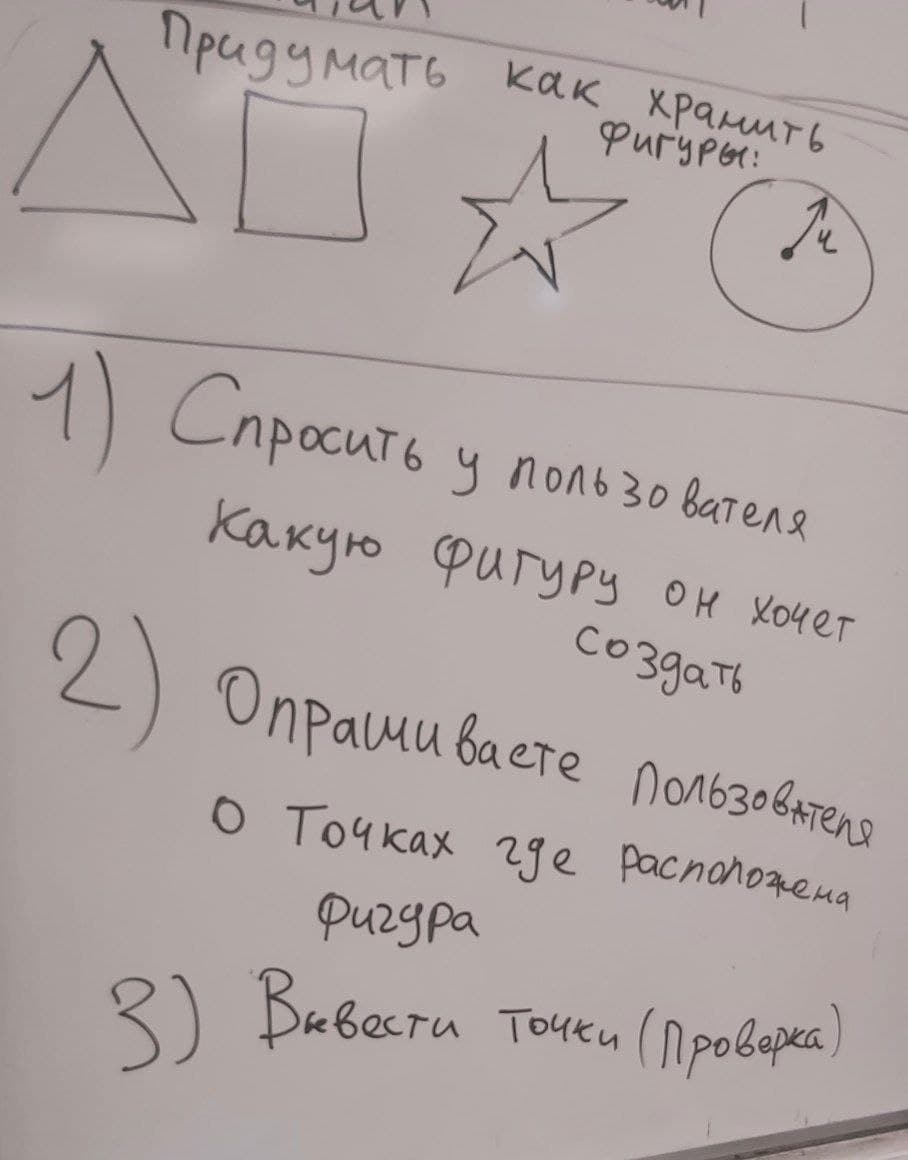 Придумать как хранить
фигуры:
r
1) Спросить у пользователя
какую фигуру он хочет
создать
2) Опрашиваете пользователя
о точках где расположена
фигура
3) Вывести точки (Проверка)